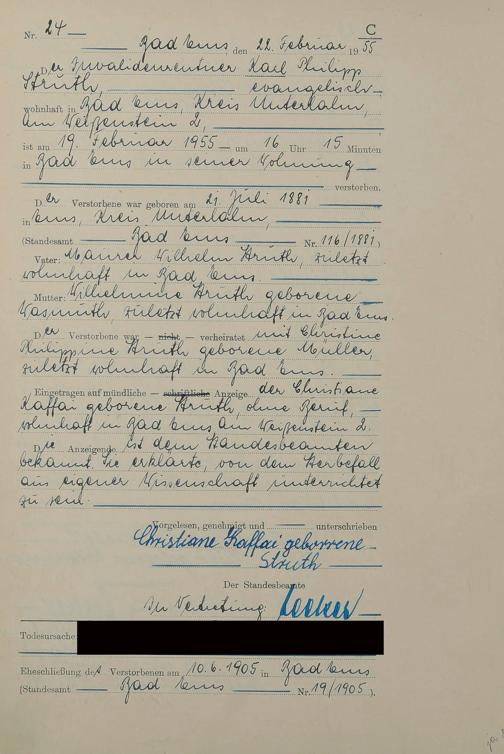 Nr. 24
C
Bad Ems, den 22. Februar 1955
Der Invalidenrentner Karl Philipp
Struth, evangelisch
wohnhaft in Bad Ems, Kreis Unterlahn,
Am Weißenstein 2,
ist am 19. Februar 1955 um 16 Uhr 15 Minuten
in Bad Ems in seiner Wohnung
verstorben.
Der Verstorbene war geboren am 21. Juli 1881
in Ems, Kreis Unterlahn,
(Standesamt Bad Ems Nr. 116/1881)
Vater: Maurer Wilhelm Struth, zuletzt
wohnhaft in Bad Ems.
Mutter: Wilhelmine Struth geborene
Wasmuth, zuletzt wohnhaft in Bad Ems.
Der Verstorbene war – nicht – verheiratet mit Christine
Philippine Struth geborene Müller,
zuletzt wohnhaft in Bad Ems.
Eingetragen auf mündliche – schriftliche – Anzeige der Christiane
Kaffai geborene Struth, ohne Beruf,
wohnhaft in Bad Ems Am Weißenstein 2.
Die Anzeigende ist dem Standesbeamten
bekannt. Sie erklärte, von dem Sterbefall
aus eigener Wissenschaft unterrichtet
zu sein.
Vorgelesen, genehmigt und unterschrieben
Christiane Kaffai geborene
Struth
Der Standesbeamte
In Vertretung:
Todesursache:
Eheschließung des Verstorbenen am 10.6.1905 in Bad Ems
(Standesamt Bad Ems Nr. 19/1905).